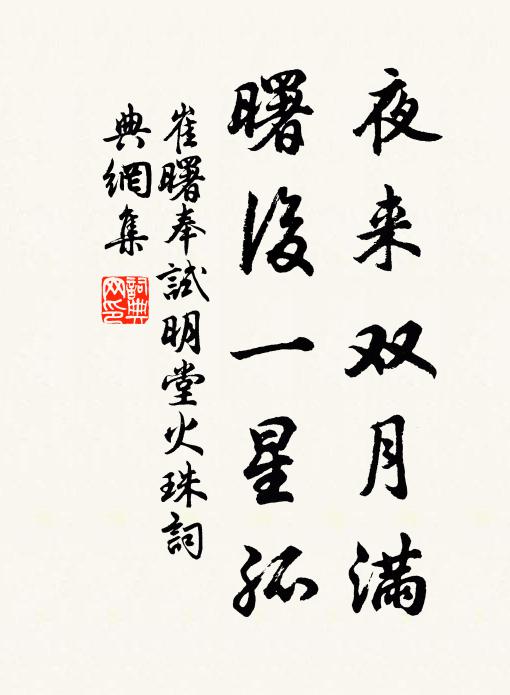 夜来双月满
曙後一星孤
崔曙奉試明堂火珠詞
典網集
詞典
网印